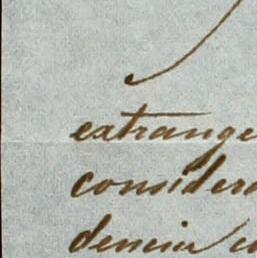 extrange
consider
dencia